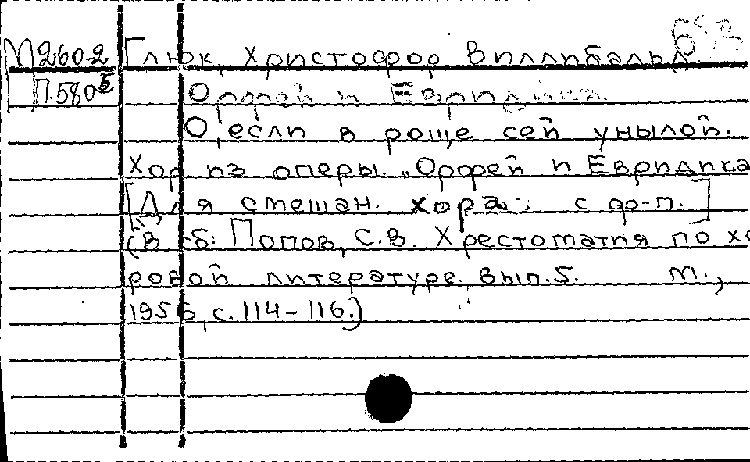 М260-2 Глюк, Христофор Виллибальд
П580⁵ Орфей и Евридика.
О, если в роще сей унылой.
Хор из оперы „Орфей и Евридика
[Для смешан. хора с ф-п.]
(В сб: Попов, С.В. Хрестоматия по хо
ровой литературе. вып.5. М.,
1956, с. 114-116.)